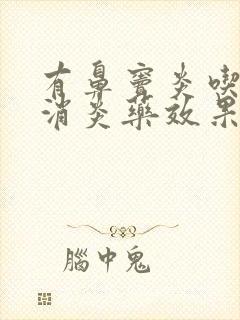 有鼻窦炎喫
消炎藥效果
腦中鬼